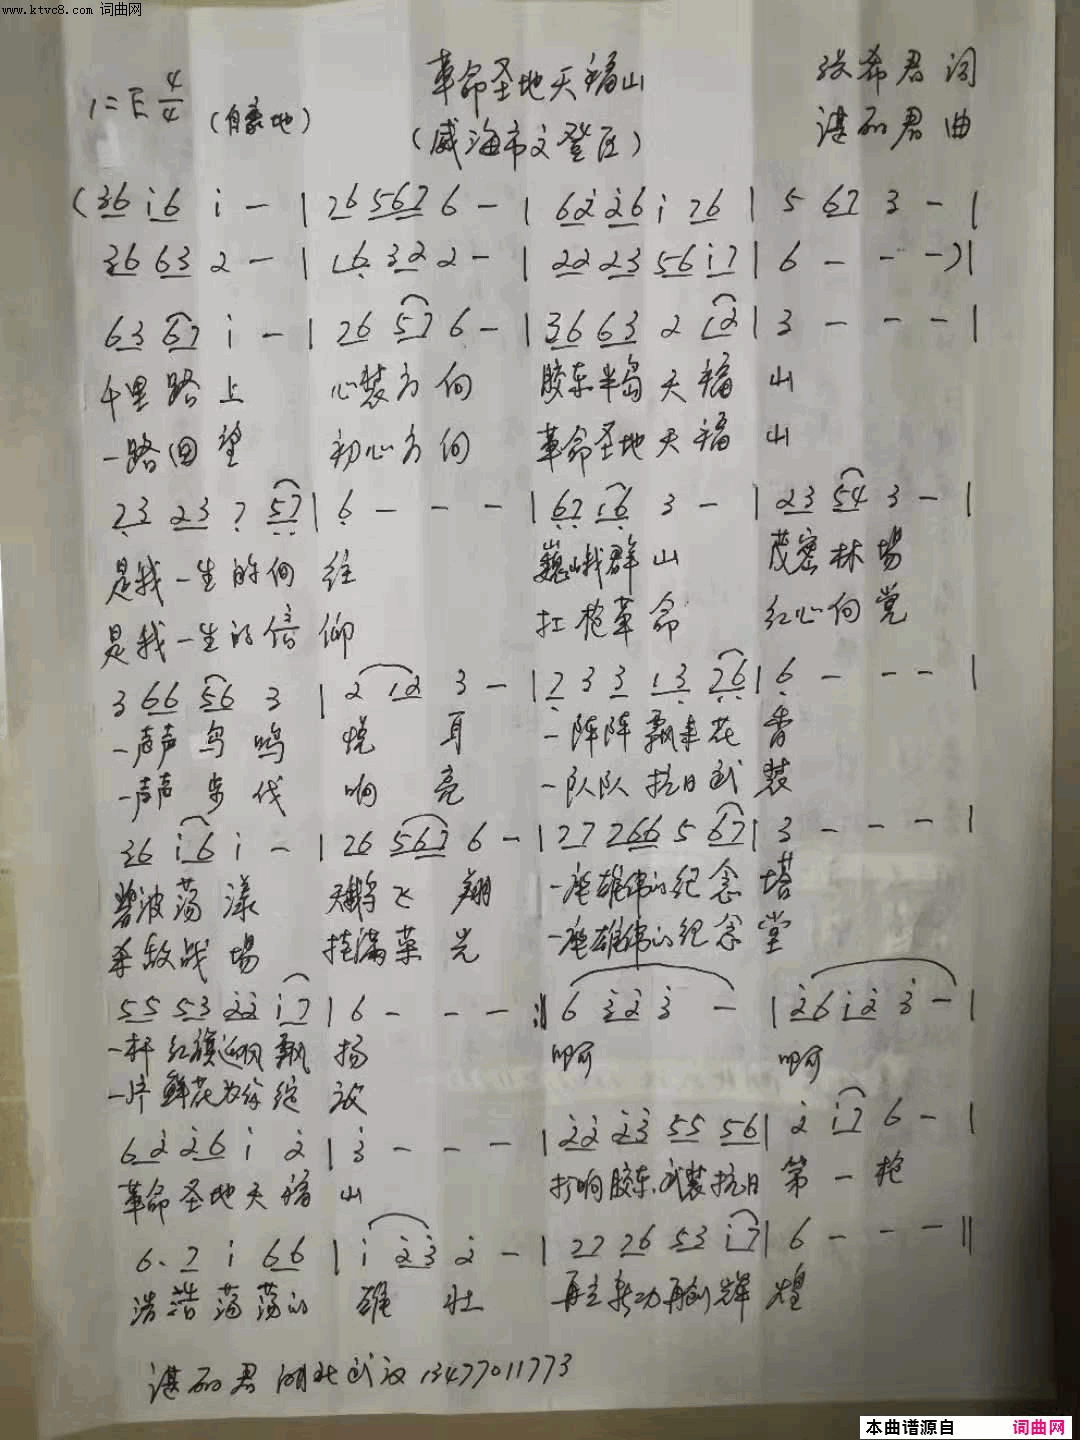 www.ktvc8.com 词曲网
革命圣地天福山
张希君 词
1=E 4/4 (自豪地)
(威海市文登区)
谌丽君 曲
(36 i6 i - | 76 567 6 - | 62 26 i 76 | 5 67 3 - |
36 63 2 - | 16 32 2 - | 22 23 56 i7 | 6 - - -)|
63 67 i - | 76 57 6 - | 36 63 2 12 | 3 - - - |
千里路上 心装方向 胶东半岛天福山
一路回望 初心方向 革命圣地天福山
73 23 7 57 | 6 - - - | 67 16 3 - | 23 54 3 - |
是我一生的向往 巍峨群山 茂密林场
是我一生的信仰 扛枪革命 红心向党
3 66 56 3 | 2 12 3 - | 7 3 3 13 76 | 6 - - - |
一声声鸟鸣悦耳 一阵阵飘来花香
一声声步伐响亮 一队队抗日武装
36 i6 i - | 76 567 6 - | 77 766 5 67 | 3 - - - |
碧波荡漾 天鹅飞翔 一座雄伟的纪念塔
杀敌战场 挂满荣光 一座雄伟的纪念堂
55 53 22 i7 | 6 - - - :|| 6 32 3 - | 26 i2 3 - |
一杆红旗迎风飘扬 啊 啊
一片鲜花为你绽放
62 26 i 2 | 3 - - - | 22 23 55 56 | 2 i7 6 - |
革命圣地天福山 打响胶东武装抗日第一枪
6. 7 i 66 | i 23 2 - | 77 76 53 i7 | 6 - - - ||
浩浩荡荡的雄壮 再立新功再创辉煌
谌丽君 湖北武汉 13477011773
本曲谱源自 词曲网